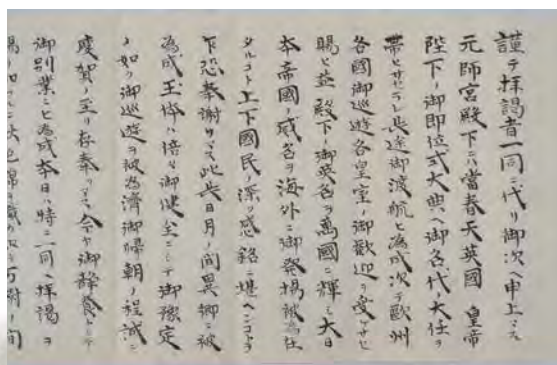 謹テ拝謁者一同ニ代リ御次ヘ申上ニス
元帥宮殿下ニハ當春大英國 皇帝
陛下ノ御即位式大典ヘ御名代ノ大任ヲ
帯ヒサセラレ長途御渡航ヒ為成次テ歐州
各國御巡遊各皇室ノ御歡迎ヲ受ヒサセ
賜ヒ益殿下ノ御英名ヲ萬國ニ輝シ大日
本帝國ノ威名ヲ海外ニ御発揚被為在
タルコト上下國民ノ深ク感銘ニ堪ヘンコトヲ
乍恐奉謝リマス此長日月ノ間異郷ニ被
為成玉体ハ倍々御健全ニシテ御豫定
ノ如ク御巡遊ヲ被為濟御帰朝ノ程誠ニ
慶賀ノ至リ存奉リマス今ヤ御静養トシテ
御別業ニヒ為成本日ハ時ニ一同ヘ拝謁ヲ